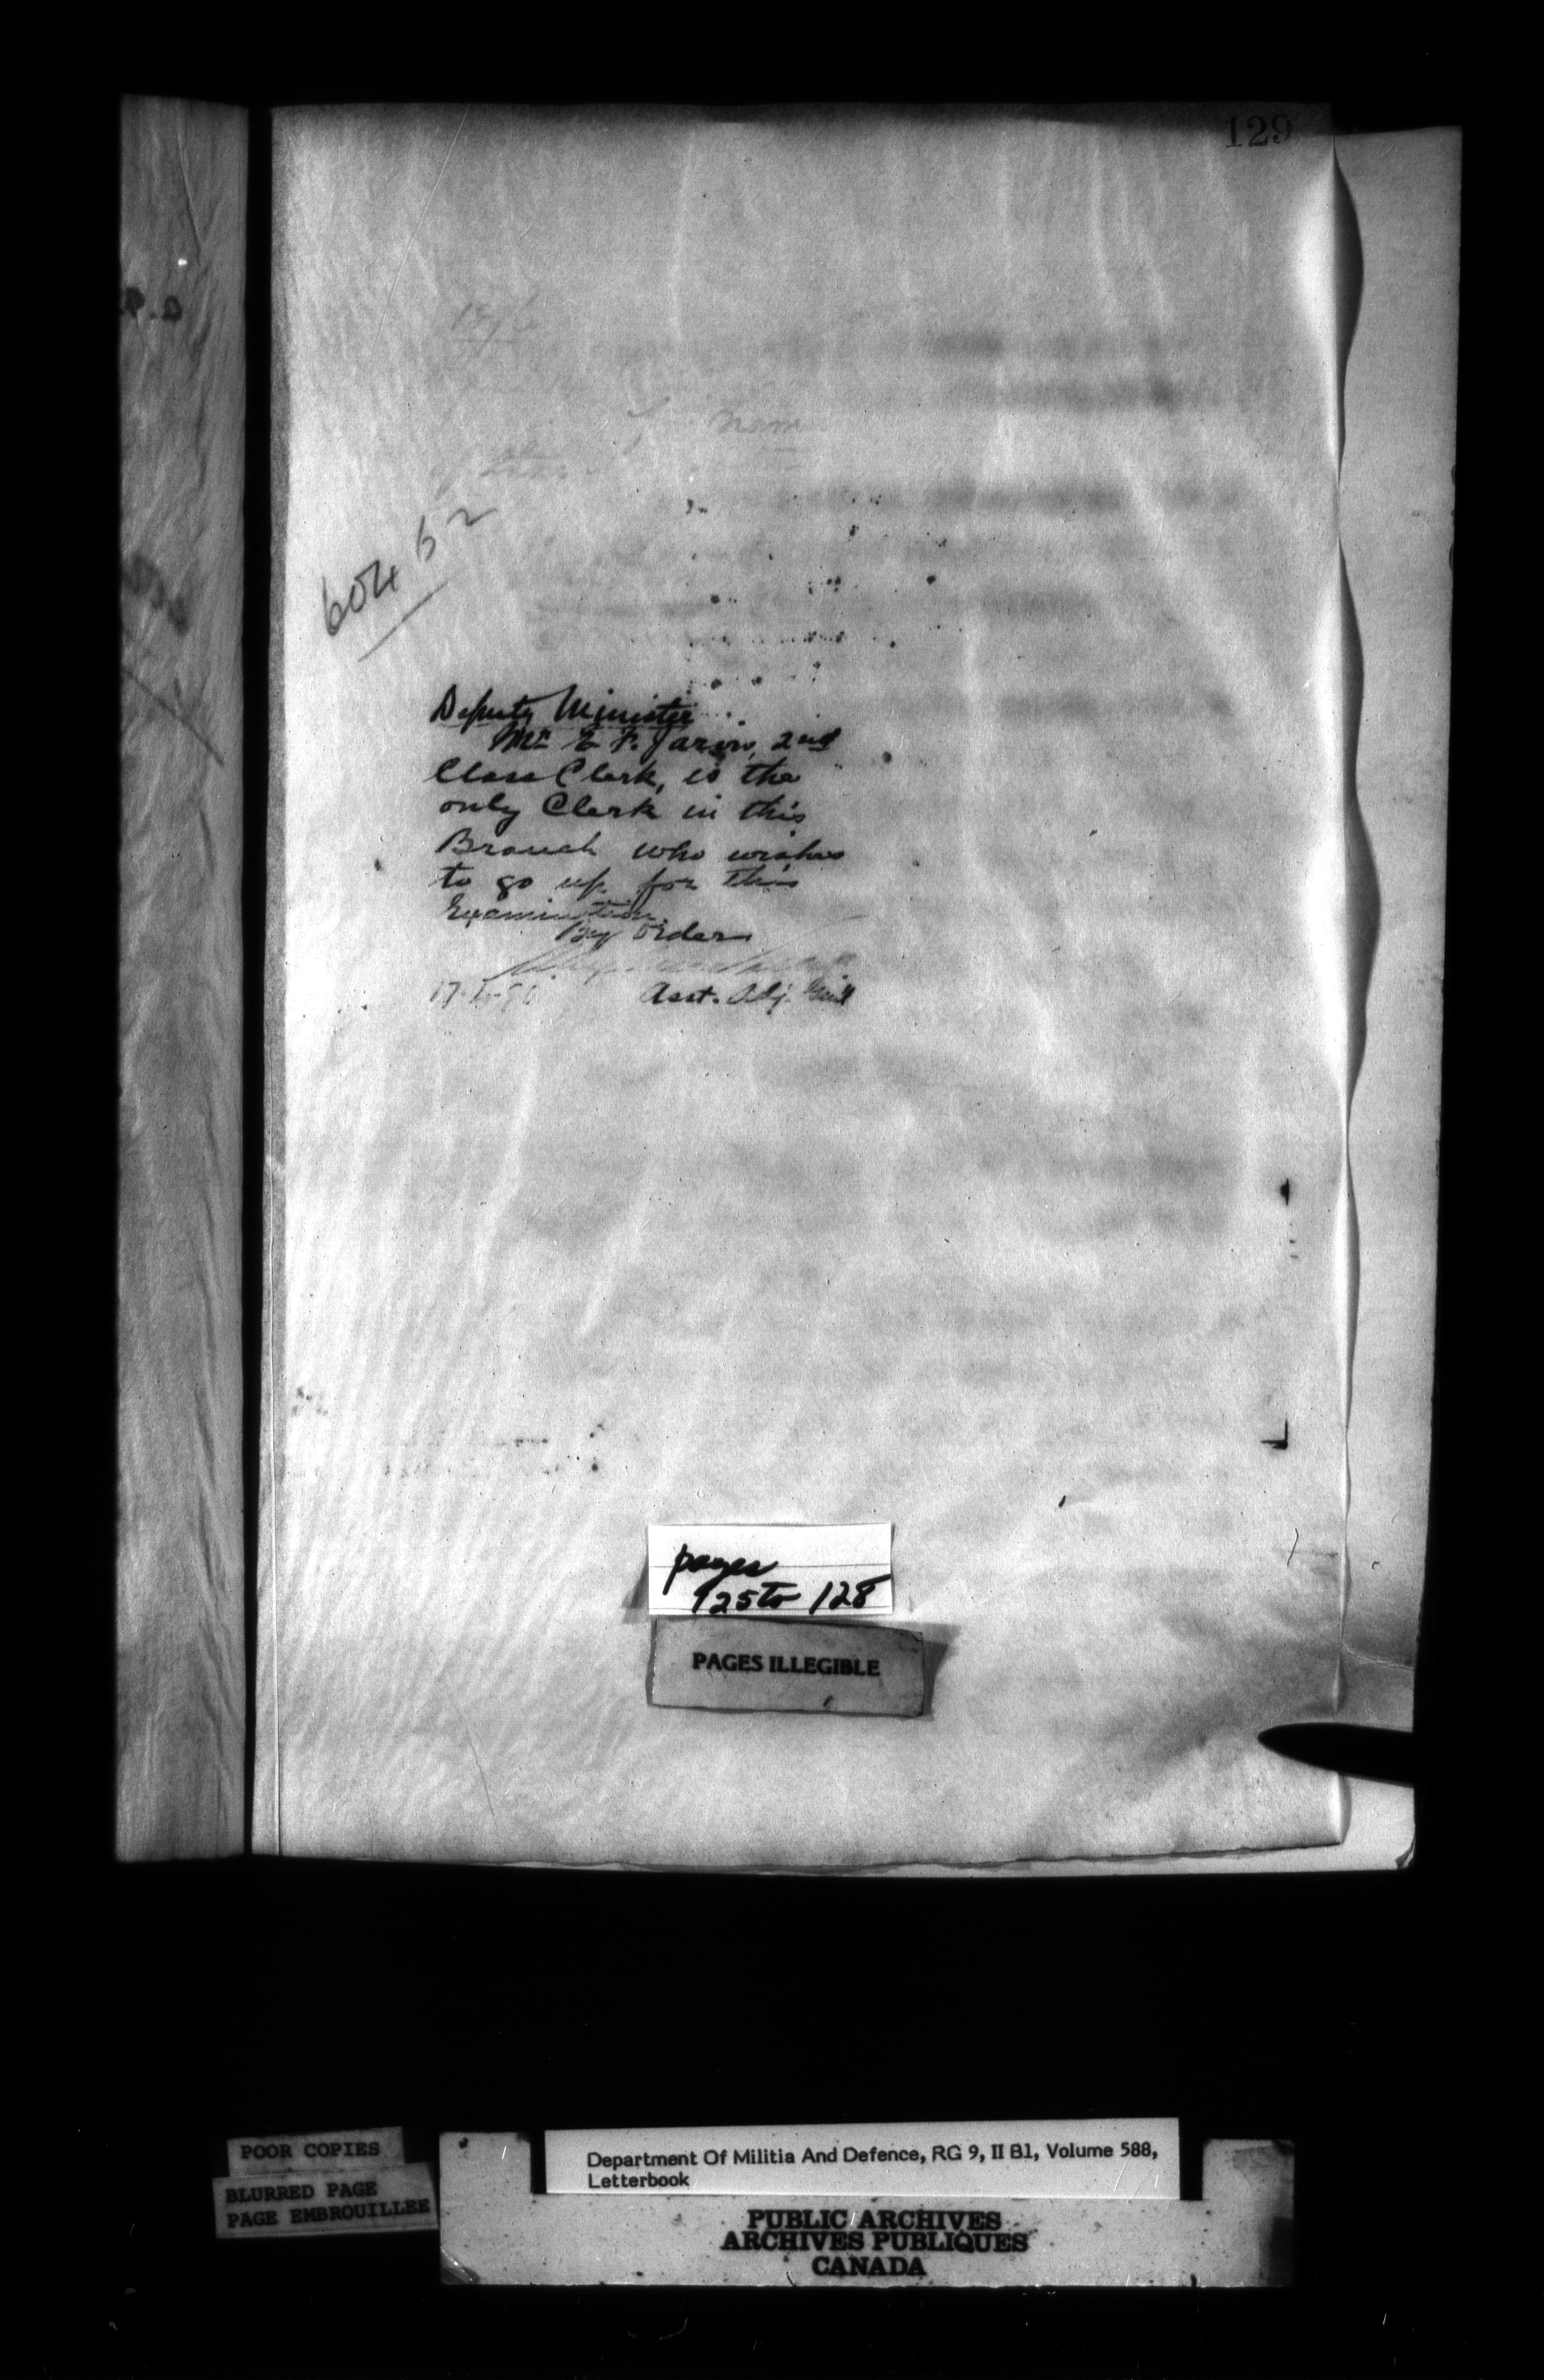 129
nom
60462
Deputy Minister
Mr. E. F. Jarvis, 2nd
Class Clerk, is the
only Clerk in this
Branch who wishes
to go up for this
Examination.
By order
Asst. Adj. Gen'l
pages
125 to 128
PAGES ILLEGIBLE
POOR COPIES
BLURRED PAGE
PAGE EMBROUILLEE
Department Of Militia And Defence, RG 9, II B1, Volume 588,
Letterbook
PUBLIC ARCHIVES
ARCHIVES PUBLIQUES
CANADA